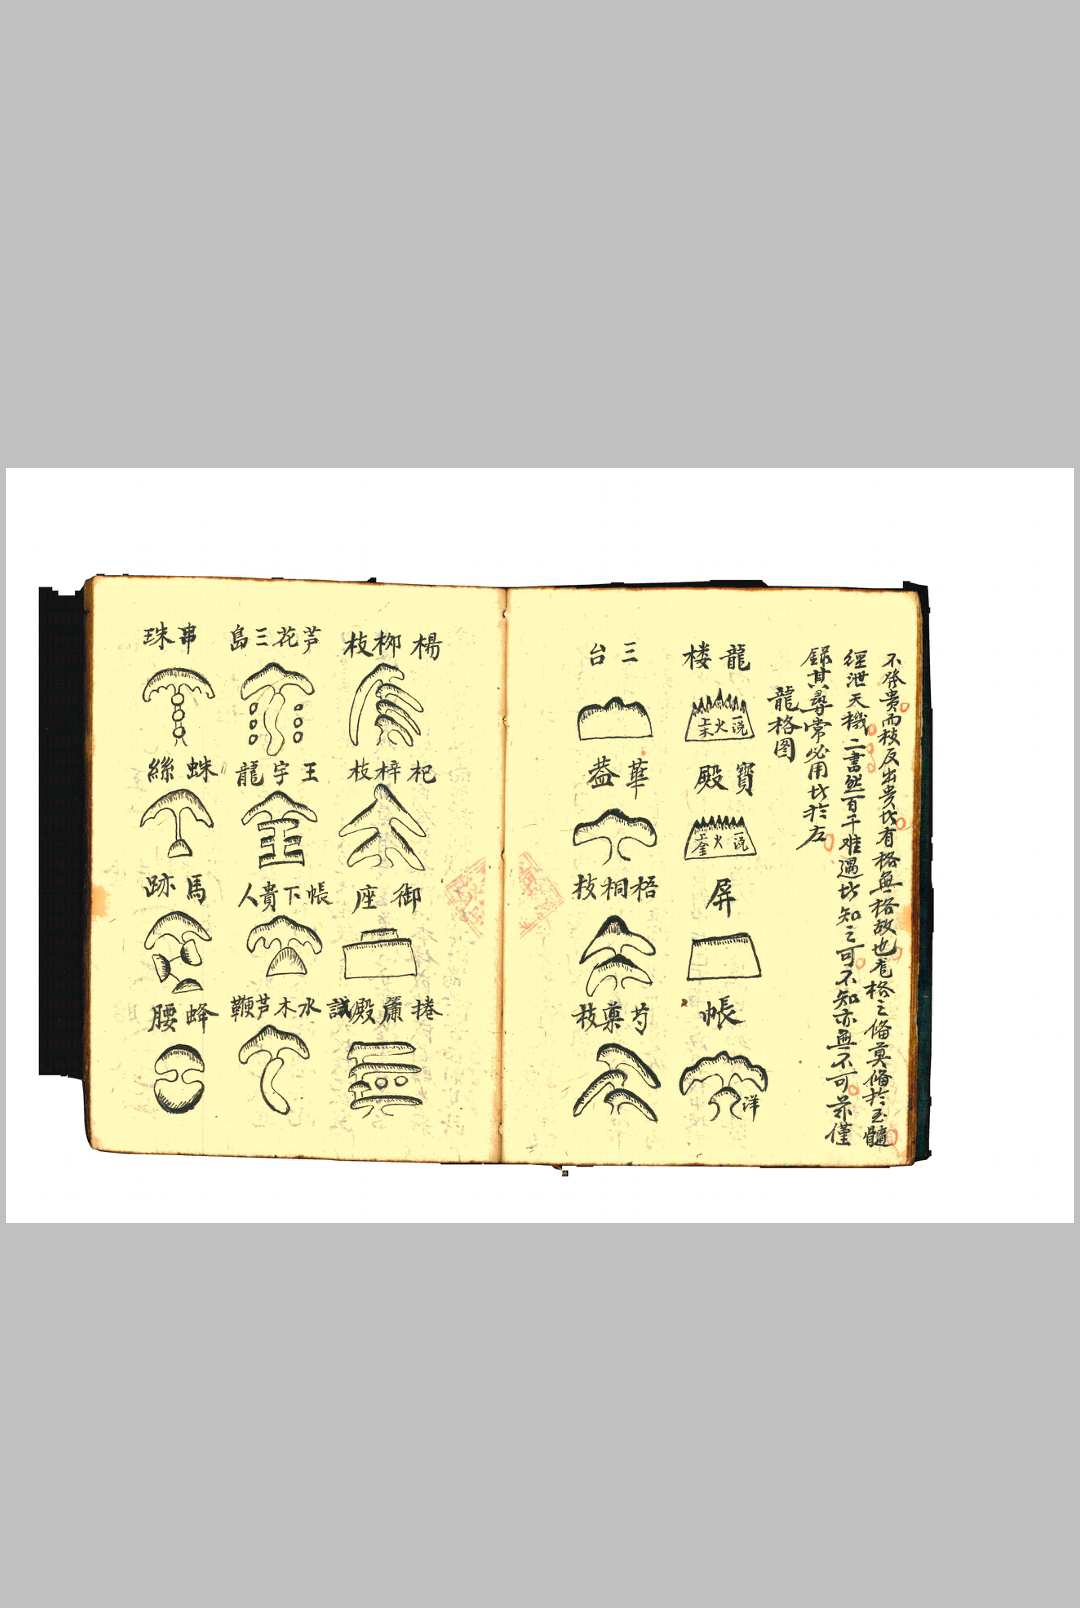 不發貴而枝反出貴者有格無格故也尨格之偹莫偹於玉髓
經泄天機二書然百千难遇者知之可不知亦無不可茶僅
録其尋常必用者於左
龍格图
龍楼
寳殿
屏
帳
洋
三台
華蓋
梧桐枝
芍薬枝
楊柳枝
杞梓枝
御座
捲簾殿試
芦花三島
王字龍
帳下貴人
水木芦鞭
串珠
蛛絲
馬跡
蜂腰